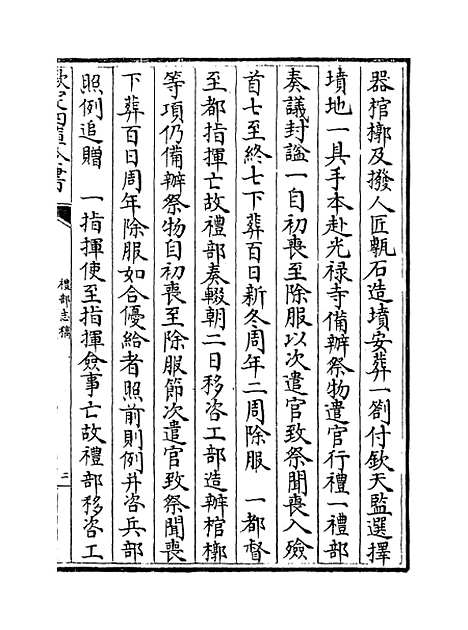 器棺槨及撥人匠甎石造墳安葬一劄付欽天監選擇
墳地一具手本赴光禄寺備辦祭物遣官行禮一禮部
奏議封諡一自初喪至除服以次遣官致祭聞喪入殮
首七至終七下葬百日新冬周年二周除服 一都督
至都指揮亡故禮部奏輟朝二日移咨工部造辦棺槨
等項仍備辦祭物自初喪至除服節次遣官致祭聞喪
下葬百日周年除服如合優給者照前則例并咨兵部
照例追贈 一指揮使至指揮僉事亡故禮部移咨工
欽定四庫全書
禮部志稿
三